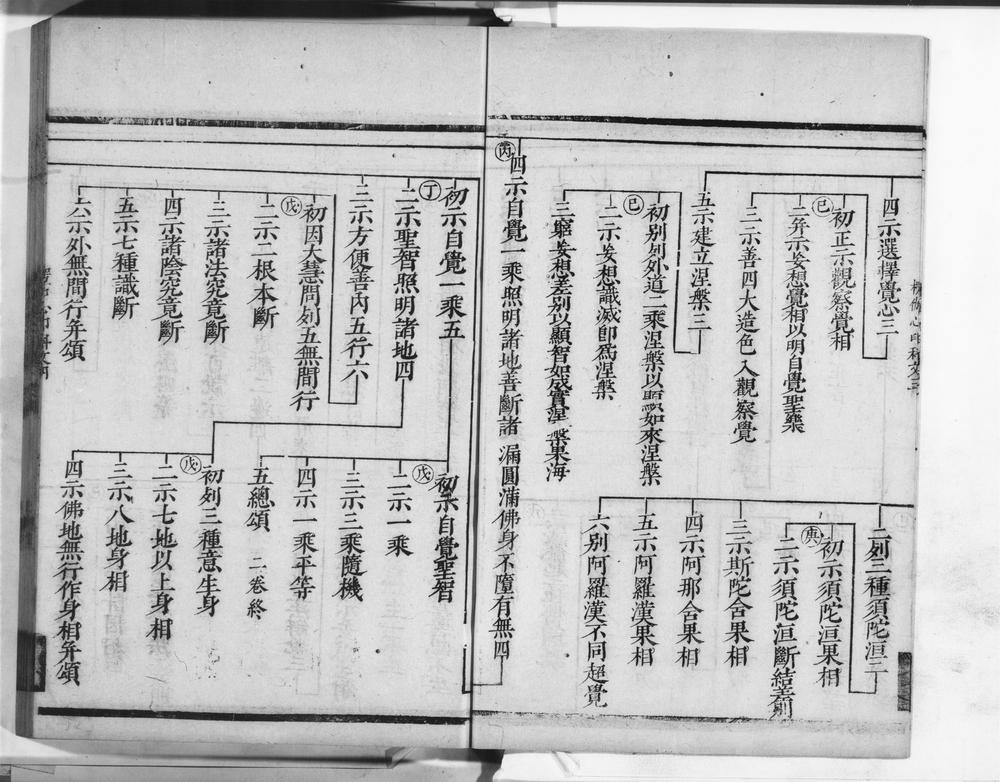 四示選擇覺心三
己
初正示觀察覺相
二并示妄想覺相以明自覺聖樂
三示善四大造色入觀察覺
五示建立涅槃三
己
初別列外道二乘涅槃以顯如來涅槃
二示妄想識滅即為涅槃
三窮妄想差別以顯智如成實涅槃果海
二列三種須陀洹二
庚
初示須陀洹果相
二示須陀洹斷結差別
三示斯陀含果相
四示阿那含果相
五示阿羅漢果相
六別阿羅漢不同超覺
丙
四示自覺一乘照明諸地善斷諸漏圓滿佛身不墮有無四
丁
初示自覺一乘五
二示聖智照明諸地四
三示方便善內五行六
戊
初因大慧問列五無間行
二示二根本斷
三示諸法究竟斷
四示諸陰究竟斷
五示七種識斷
六示外無間行并頌
戊
初示自覺聖智
二示一乘
三示三乘隨機
四示一乘平等
五總頌 二卷終
戊
初列三種意生身
二示七地以上身相
三示八地身相
四示佛地無行作身相并頌